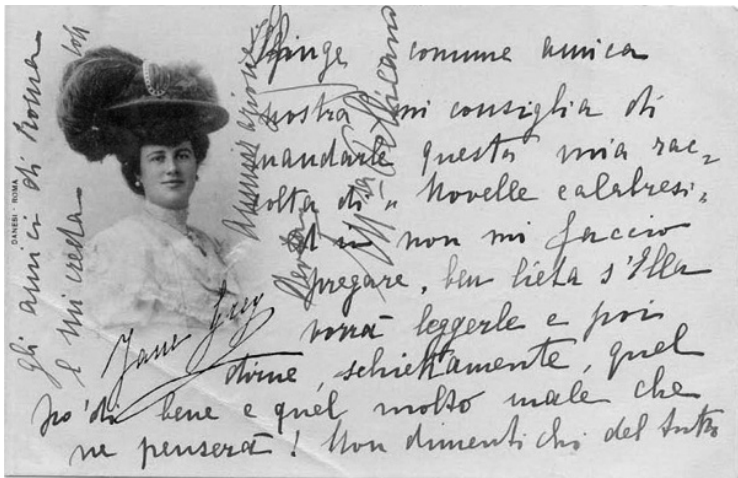 Sfinge comune amica
nostra mi consiglia di
mandarle questa mia rac=
colta di "Novelle calabresi"
Ed io non mi faccio
pregare, ben lieta s'Ella
vorrà leggerle e poi
dirne, schiettamente, quel
po' di bene e quel molto male che
ne penserà! Non dimentichi del tutto
gli amici di Roma
e mi creda
Jane Grey
DANESI - ROMA